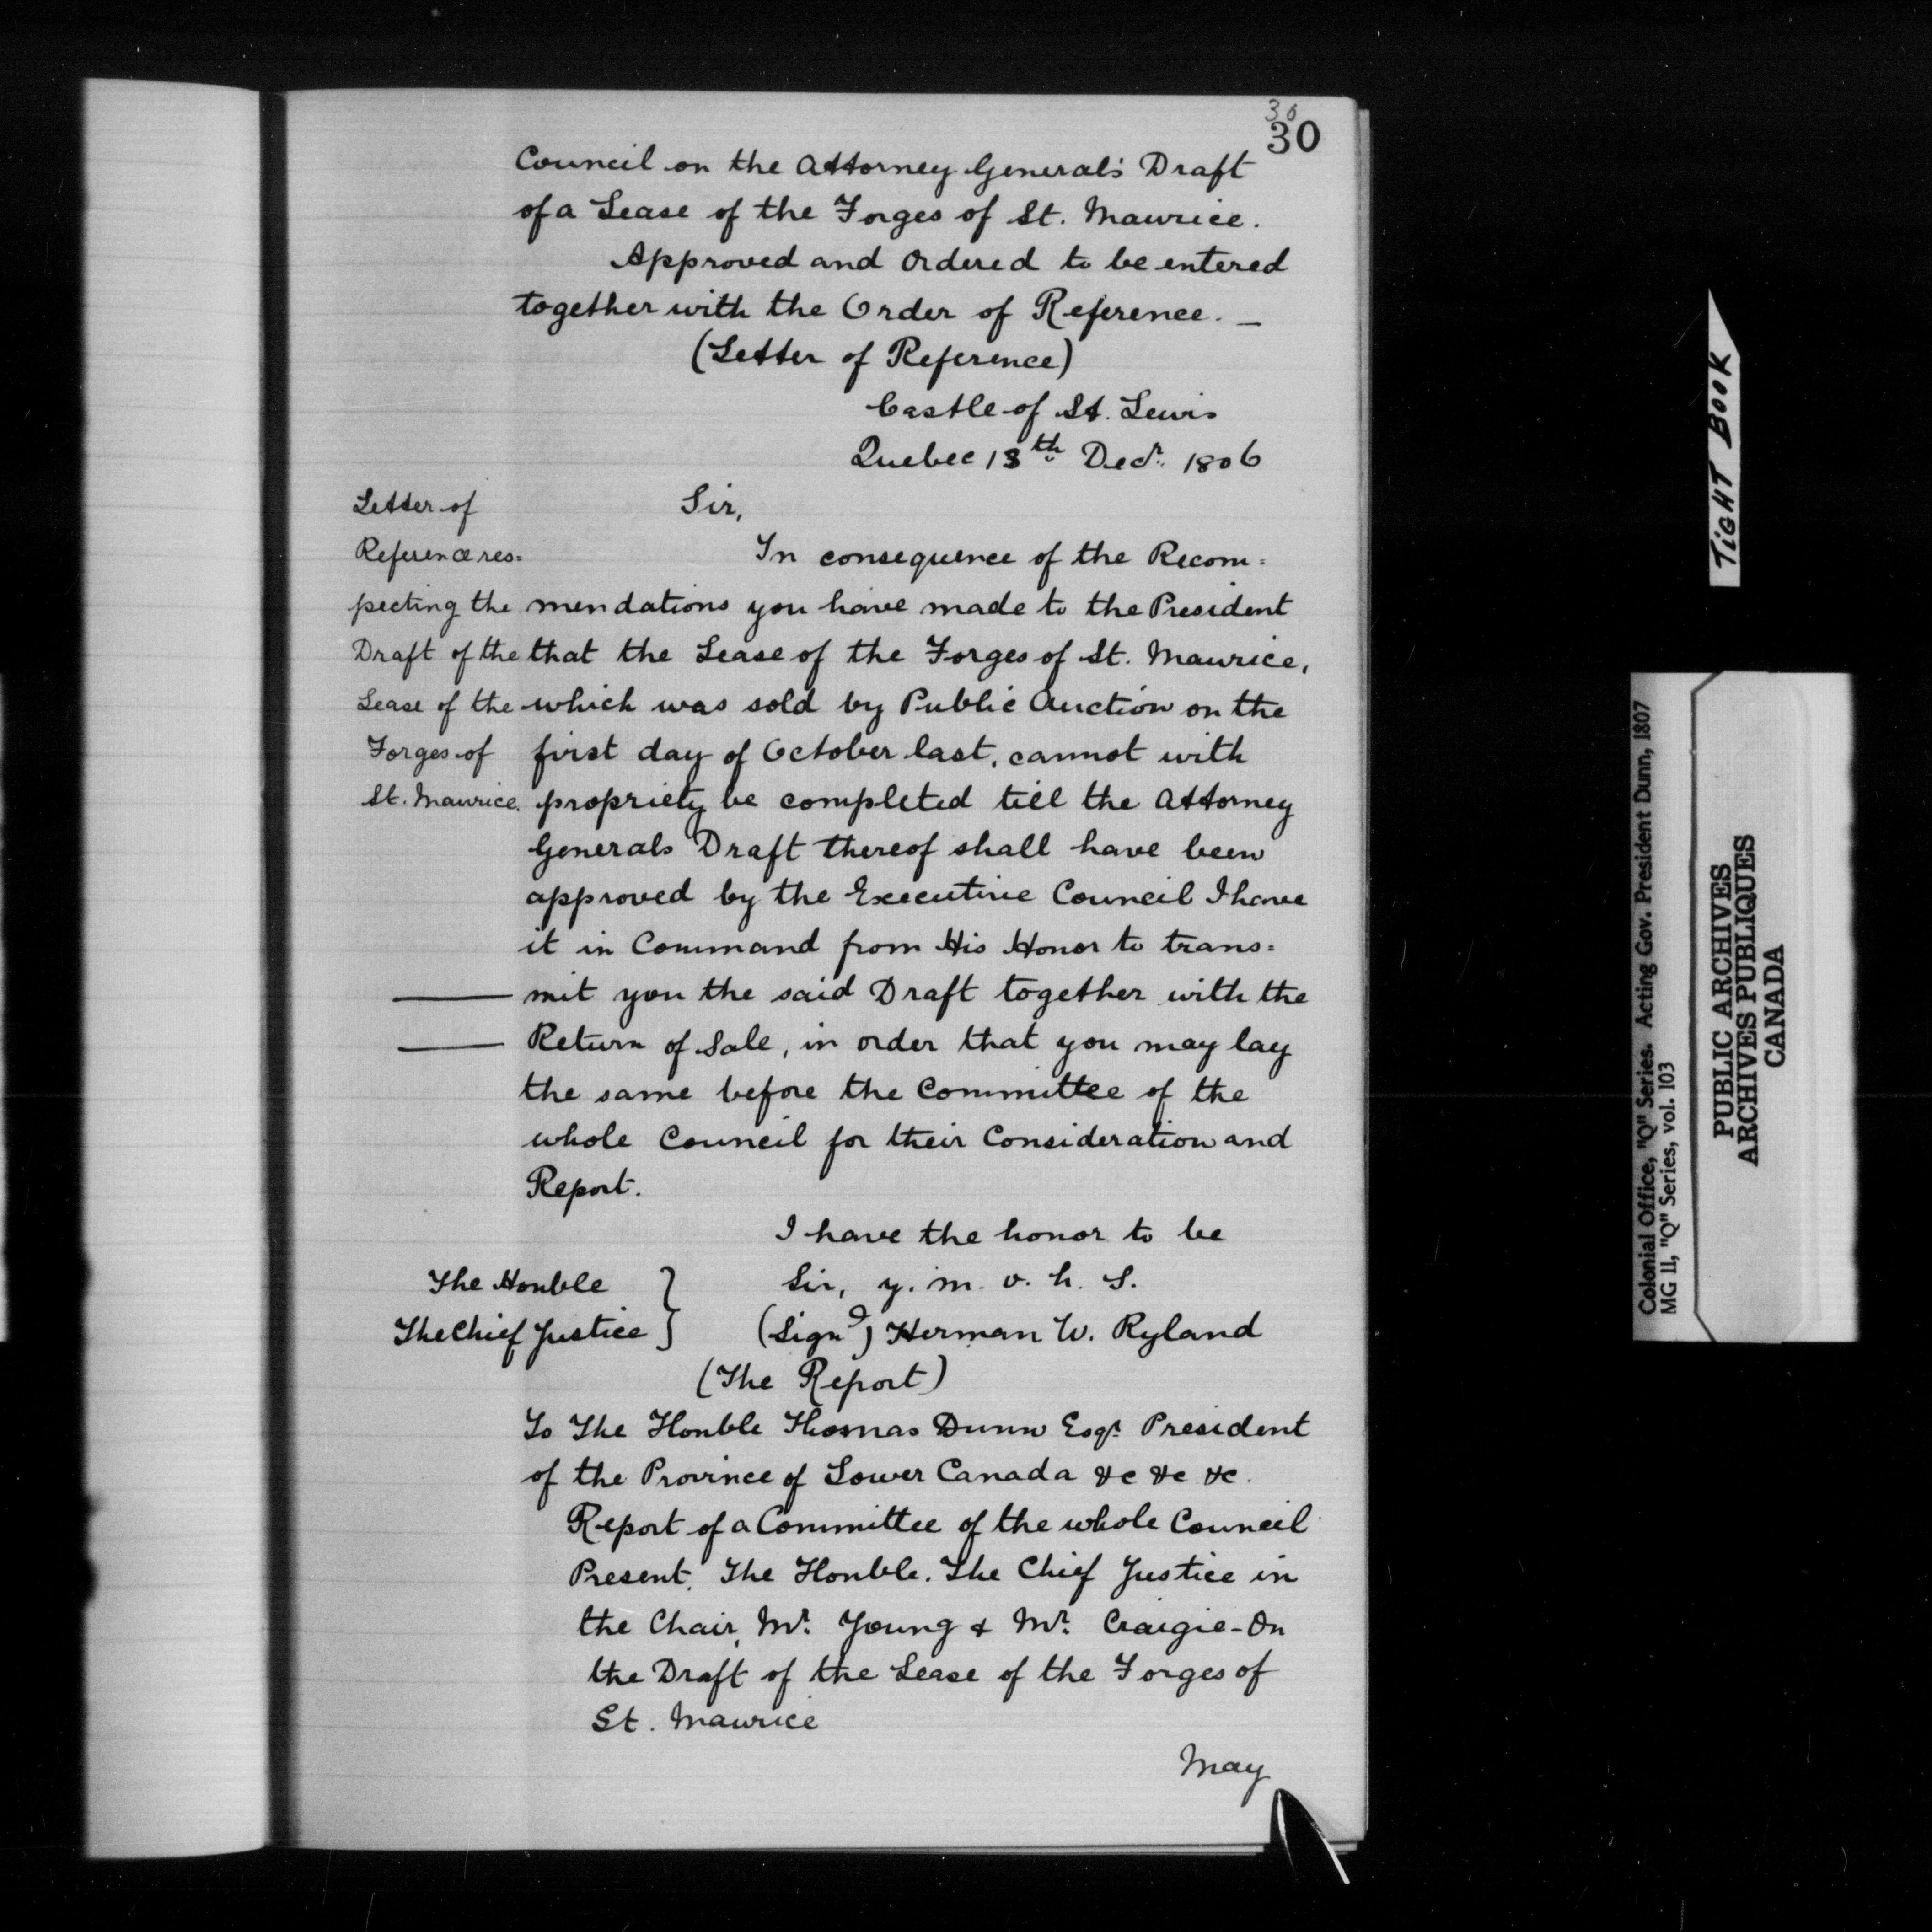 30
30
Council on the Attorney General's Draft
of a Lease of the Forges of St. Maurice.
Approved and Ordered to be entered
together with the Order of Reference. —
(Letter of Reference)
Castle of St. Lewis
Quebec 13th Decr. 1806
Letter of
Reference res=
pecting the
Draft of the
Lease of the
Forges of
St. Maurice.
Sir,
In consequence of the Recom=
mendations you have made to the President
that the Lease of the Forges of St. Maurice,
which was sold by Public Auction on the
first day of October last, cannot with
propriety be completed till the Attorney
Generals Draft thereof shall have been
approved by the Executive Council I have
it in Command from His Honor to trans=
mit you the said Draft together with the
Return of Sale, in order that you may lay
the same before the Committee of the
whole Council for their Consideration and
Report.
I have the honor to be
Sir, y. m. o. h. S.
(Signd) Herman W. Ryland
The Honble
The Chief Justice }
(The Report)
To The Honble Thomas Dunn Esqr. President
of the Province of Lower Canada &c &c &c.
Report of a Committee of the whole Council
Present. The Honble. The Chief Justice in
the Chair, Mr. Young & Mr. Craigie - On
the Draft of the Lease of the Forges of
St. Maurice
May
TIGHT BOOK
Colonial Office, "Q" Series. Acting Gov. President Dunn, 1807
MG 11, "Q" Series, vol. 103
PUBLIC ARCHIVES
ARCHIVES PUBLIQUES
CANADA